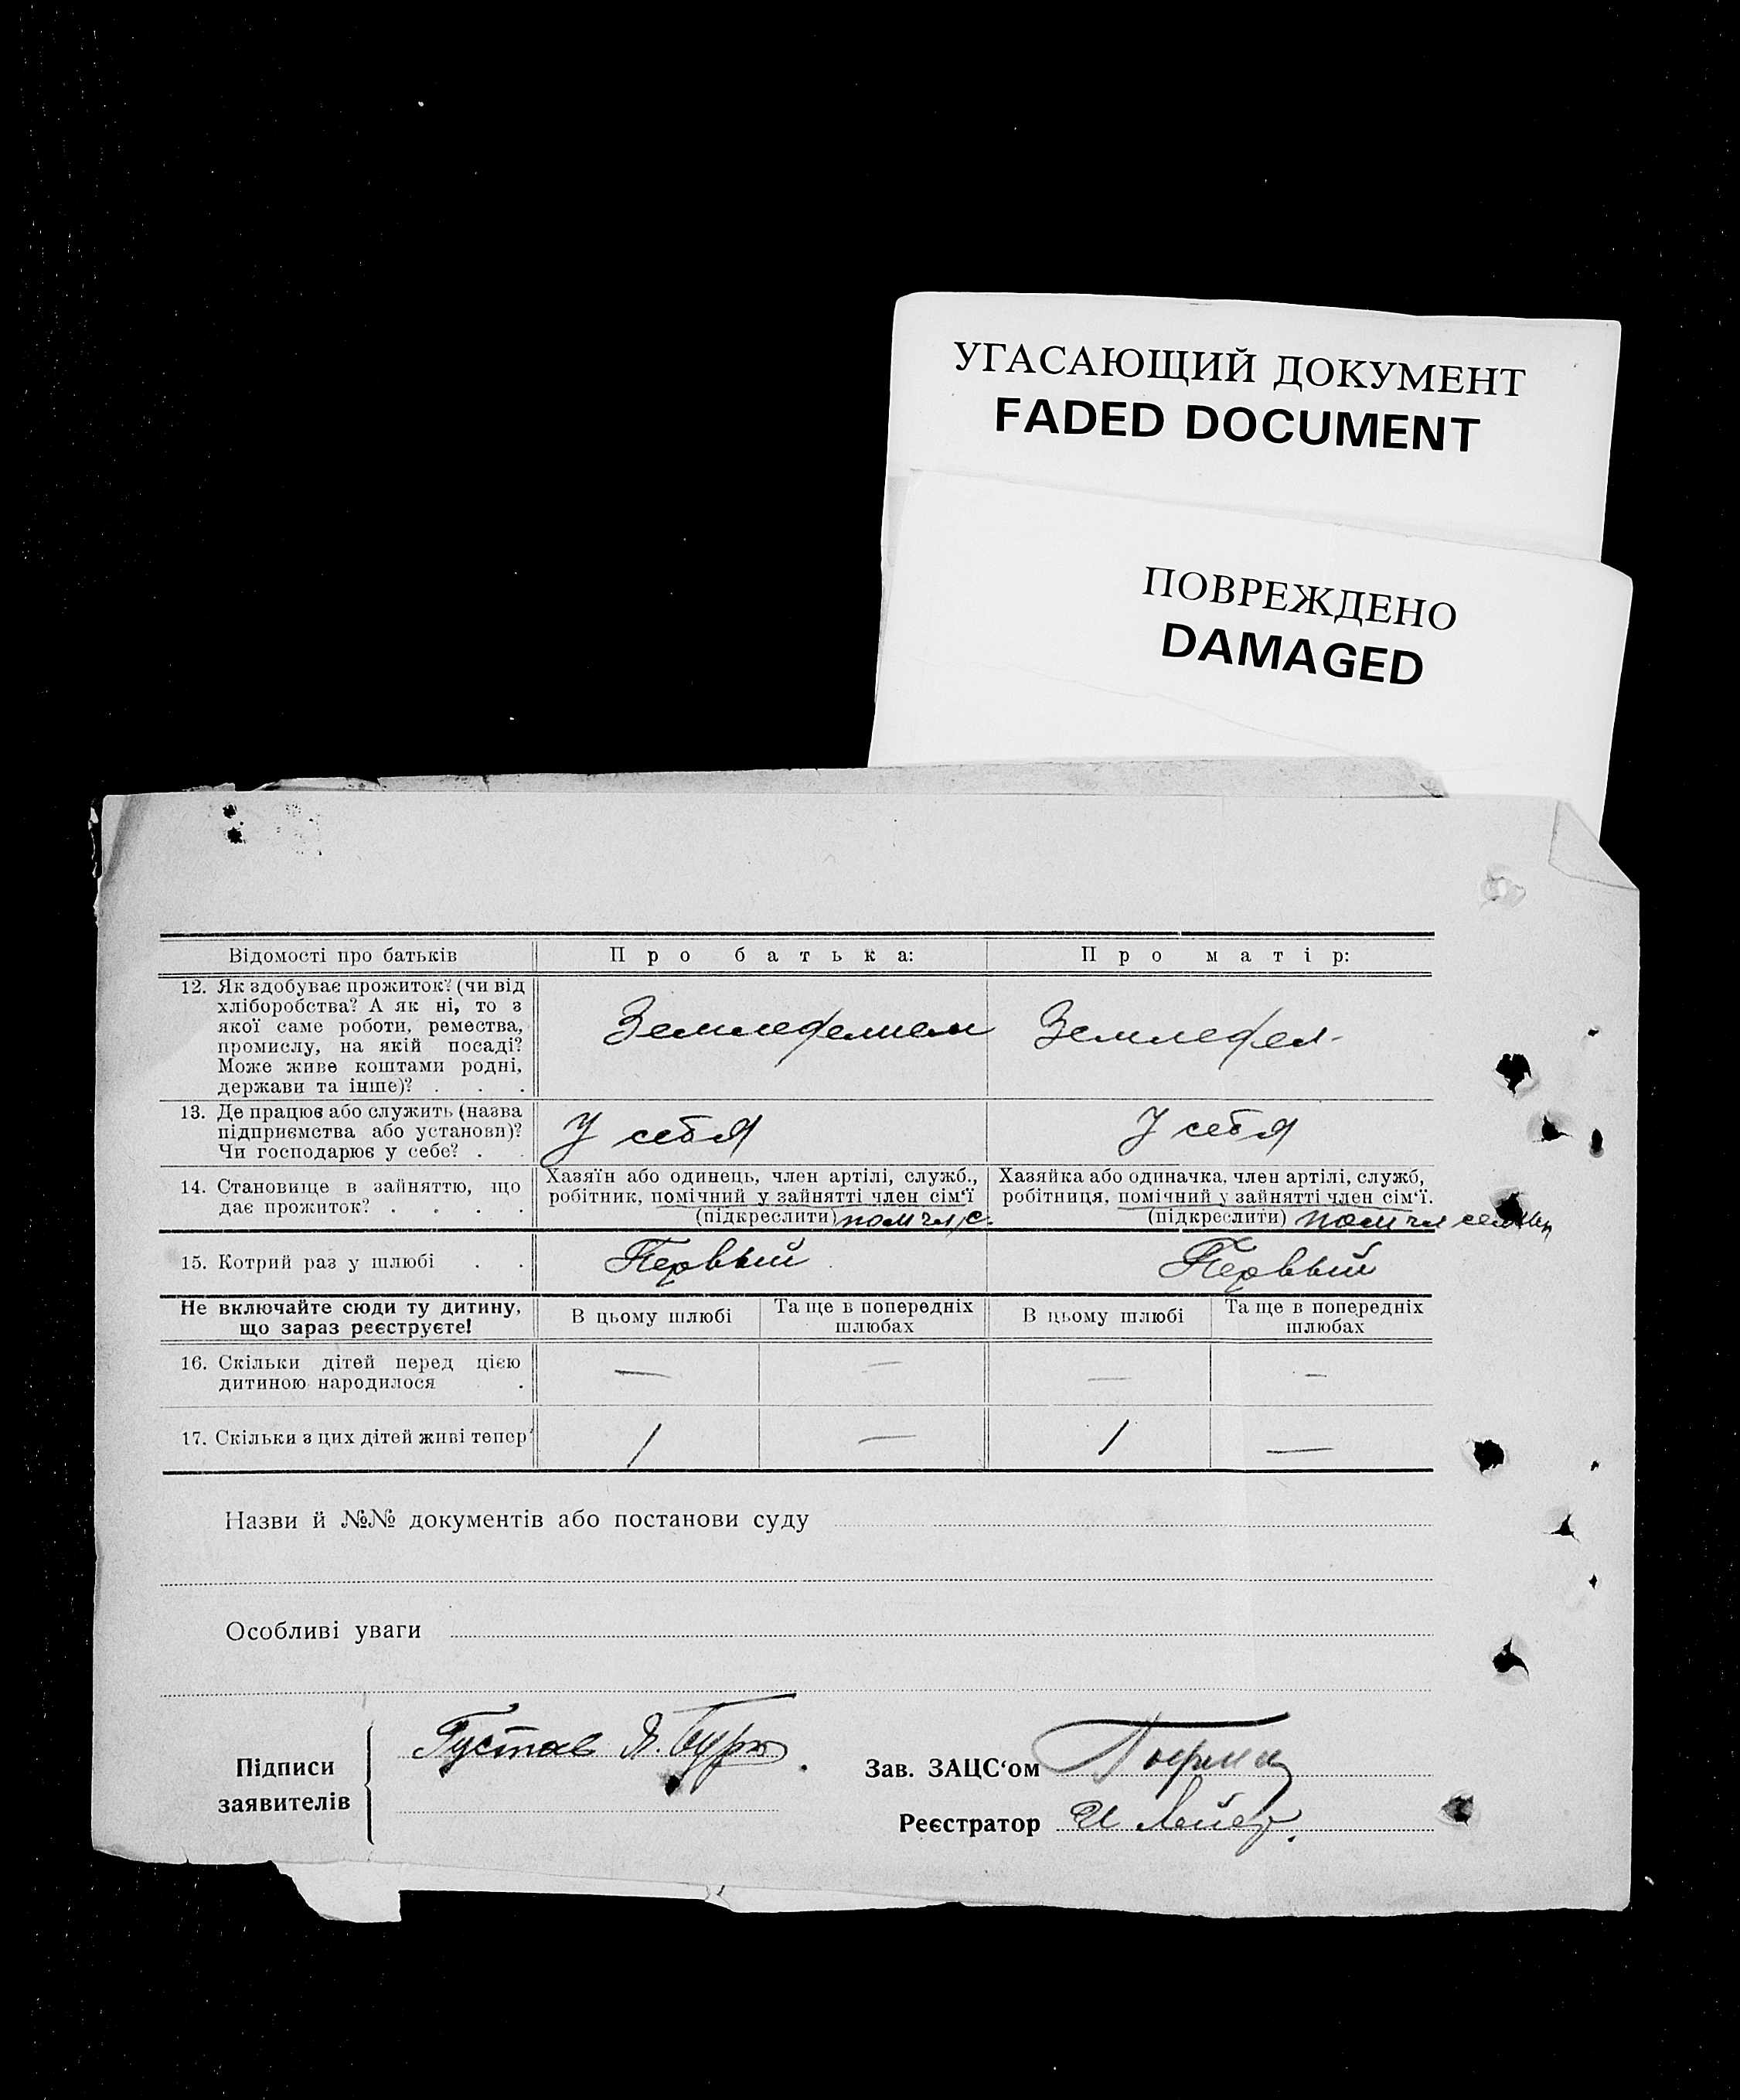 УГАСАЮЩИЙ ДОКУМЕНТ
FADED DOCUMENT
ПОВРЕЖДЕНО
DAMAGED
Відомості про батьків
Про батька:
Про матір:
12. Як здобуває прожиток? (чи від
хліборобства? А як ні, то з
якої саме роботи, ремества,
промислу, на якій посаді?
Може живе коштами родні,
держави та інше)? . . .
Земледелием
Земледел-
13. Де працює або служить (назва
підприємства або установи)?
Чи господарює у себе? . .
У себя
У себя
14. Становище в зайняттю, що
дає прожиток? . . . .
Хазяїн або одинець, член артілі, служб.,
робітник, помічний у зайнятті член сім‘ї
(підкреслити) пом чл. с.
Хазяйка або одиначка, член артілі, служб,
робітниця, помічний у зайнятті член сім‘ї.
(підкреслити) пом чл семьи
15. Котрий раз у шлюбі . .
Первый
Первый
Не включайте сюди ту дитину,
що зараз реєструєте!
В цьому шлюбі
Та ще в попередніх
шлюбах
В цьому шлюбі
Та ще в попередніх
шлюбах
16. Скільки дітей перед цією
дитиною народилося .
—
—
—
—
17. Скільки з цих дітей живі тепер?
/
—
/
—
Назви й №№ документів або постанови суду
Особливі уваги
Підписи
заявителів
Густав Я.
Зав. ЗАЦС‘ом
Реєстратор И